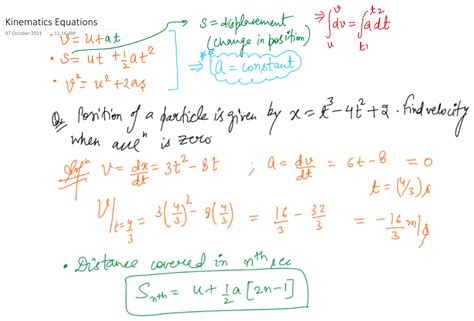 Kinematics Equations
07 October 2021 11:16 AM
• v = u + at
• s = ut + 1/2 at²
• v² = u² + 2as
s = displacement
(change in position)
⇒ a = constant
⇒ ∫ᵤᵛ dv = ∫ₜ₁ᵗ² a dt
Q. Position of a particle is given by x = t³ - 4t² + 2. find velocity
when accⁿ is zero
Solⁿ v = dx/dt = 3t² - 8t ; a = dv/dt = 6t - 8 = 0
t = (4/3) s
V/t=4/3 = 3(4/3)² - 8(4/3) = 16/3 - 32/3 = -16/3 m/s
• Distance covered in nᵗʰ sec
Sₙₜₕ = u + 1/2 a [2n-1]